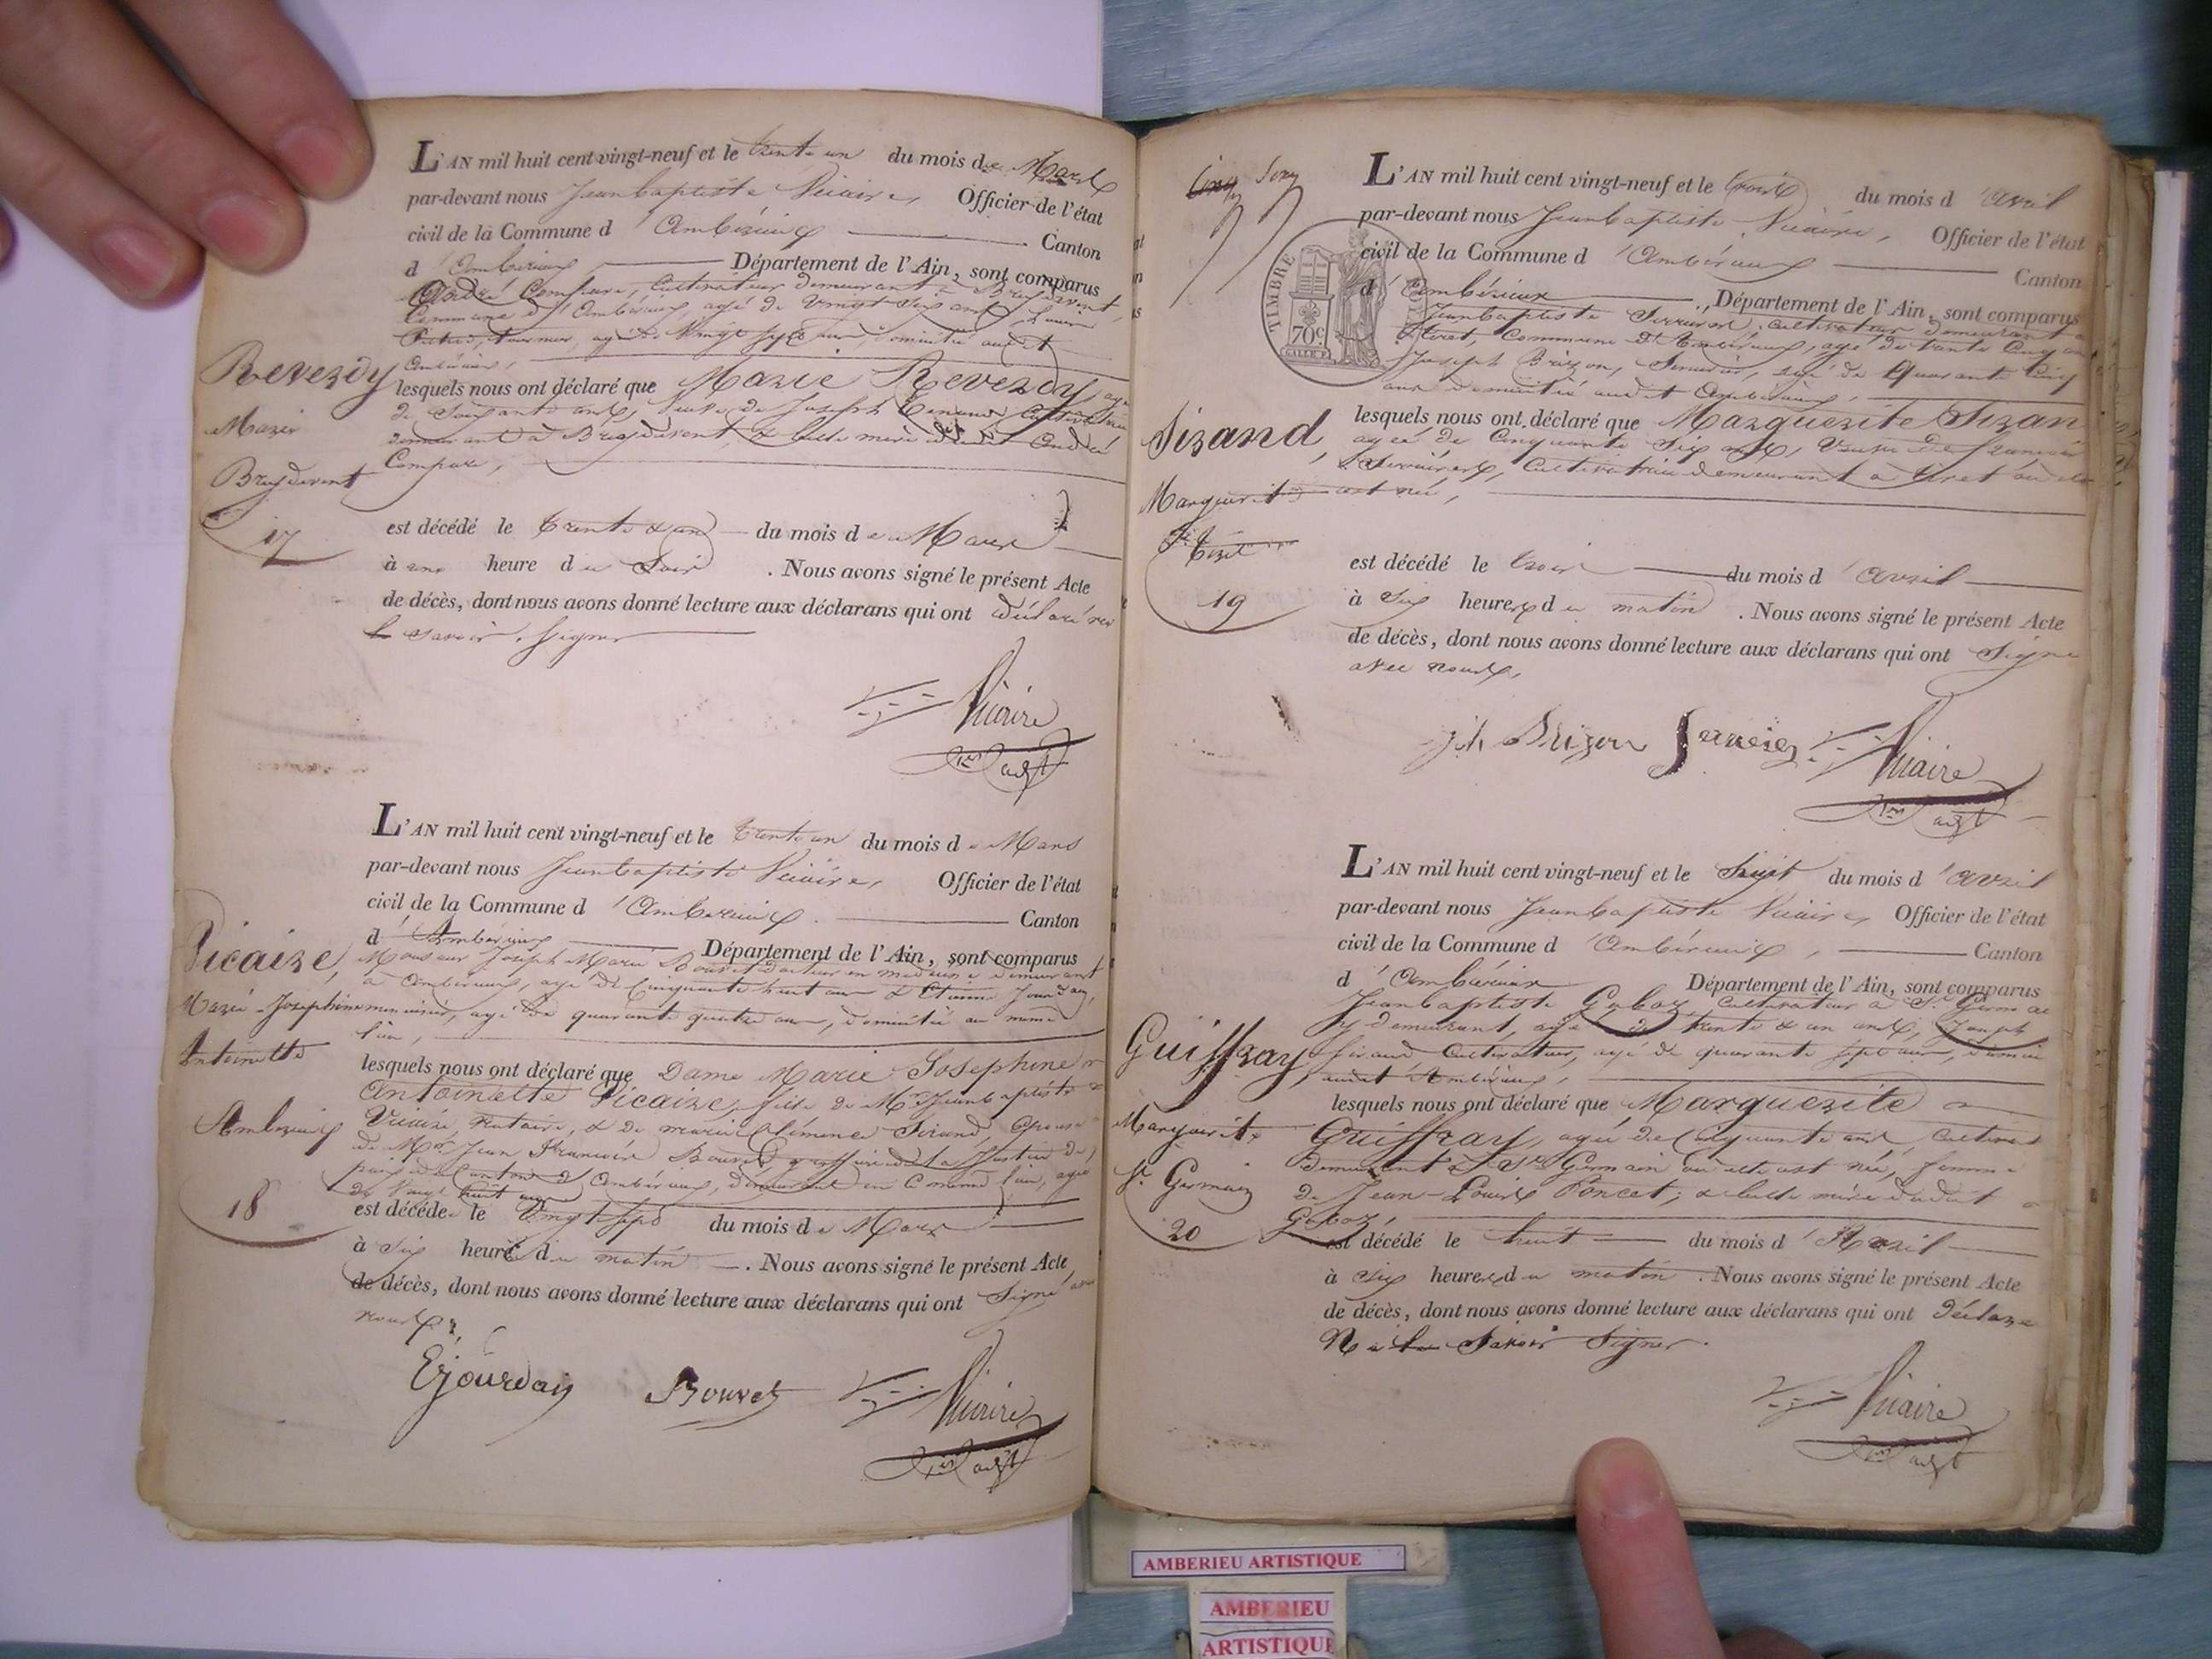 L'AN mil huit cent vingt-neuf et le trente un du mois de Mars
par-devant nous Jean baptiste Vicaire, Officier de l'état
civil de la Commune d'Ambérieux Canton
d'Ambérieux Département de l'Ain, sont comparus
André Compare, Cultivateur demeurant à Breydevent,
Commune d'Ambérieux, agé de Vingt six ans,
tourneur, agé de Vingt sept ans, domicilié audit
Ambérieux,
lesquels nous ont déclaré que Marie Reverdy, agée
de Soixante ans, Veuve de Joseph Cultivatrice
demeurant à Breydevent, & belle mère dudit André
Compare,
est décédé le trente & un du mois de Mars
à une heure du Soir. Nous avons signé le présent Acte
de décès, dont nous avons donné lecture aux déclarans qui ont déclaré ne
le savoir signer
Vicaire
Reverdy
Marie
Breydevent
17
L'AN mil huit cent vingt-neuf et le trente un du mois de Mars
par-devant nous Jean baptiste Vicaire, Officier de l'état
civil de la Commune d'Ambérieux. Canton
d'Ambérieux Département de l'Ain, sont comparus
Monsieur Joseph Marie Bouvet docteur en médecine demeurant
à Ambérieux, agé de Cinquante huit ans & Etienne Jourdan,
menuisier, agé de quarante quatre ans, domicilié au même
lieu,
lesquels nous ont déclaré que Dame Marie Josephine
Antoinette Vicaire, fille de Mr Jean baptiste
Vicaire, Notaire, & de marie Clémence Sirand, épouse
de Mr Jean François Bouvet, greffier de la Justice de
paix du Canton d'Ambérieux, demeurant en ce même lieu, agée
de Vingt huit ans
est décédée le Vingt sept du mois de Mars
à Six heure du matin. Nous avons signé le présent Acte
de décès, dont nous avons donné lecture aux déclarans qui ont Signé avec
nous.
E Jourdan Bouvet Vicaire
Vicaire,
Marie-Josephine
Antoinette
Ambérieux
18
L'AN mil huit cent vingt-neuf et le trois du mois d'avril
par-devant nous Jean baptiste Vicaire, Officier de l'état
civil de la Commune d'Ambérieux Canton
d'Ambérieux, Département de l'Ain, sont comparus
Jean baptiste cultivateur demeurant à
Tiret, Commune d'Ambérieux, agé de trente Cinq ans
Joseph Brizon, agé de Quarante Cinq
ans domicilié audit Ambérieux,
lesquels nous ont déclaré que Marguerite Sirand
agée de Cinquante Six ans, Veuve de François
Cultivatrice demeurant à Tiret où elle
est née,
est décédé le trois du mois d'avril
à Six heures du matin. Nous avons signé le présent Acte
de décès, dont nous avons donné lecture aux déclarans qui ont Signé
avec nous,
jh Brizon Vicaire
TIMBRE
70c
Sirand,
Marguerite
Tiret
19
L'AN mil huit cent vingt-neuf et le huit du mois d'avril
par-devant nous Jean baptiste Vicaire, Officier de l'état
civil de la Commune d'Ambérieux, Canton
d'Ambérieux Département de l'Ain, sont comparus
Jean baptiste Goboz, Cultivateur à St Germain
y demeurant, agé de trente & un ans, Joseph
Sirand Cultivateur, agé de quarante sept ans, domicilié
audit Ambérieux,
lesquels nous ont déclaré que Marguerite
Guiffray, agée de Cinquante ans, Cultivatrice
demeurant à St Germain où elle est née, femme
de Jean-Louis Poncet, & belle mère dudit
Goboz,
est décédé le huit du mois d'Avril
à Six heures du matin. Nous avons signé le présent Acte
de décès, dont nous avons donné lecture aux déclarans qui ont déclaré
Ne le Savoir Signer.
Vicaire
Guiffray
Marguerite
St Germain
20
AMBERIEU ARTISTIQUE
AMBERIEU
ARTISTIQUE